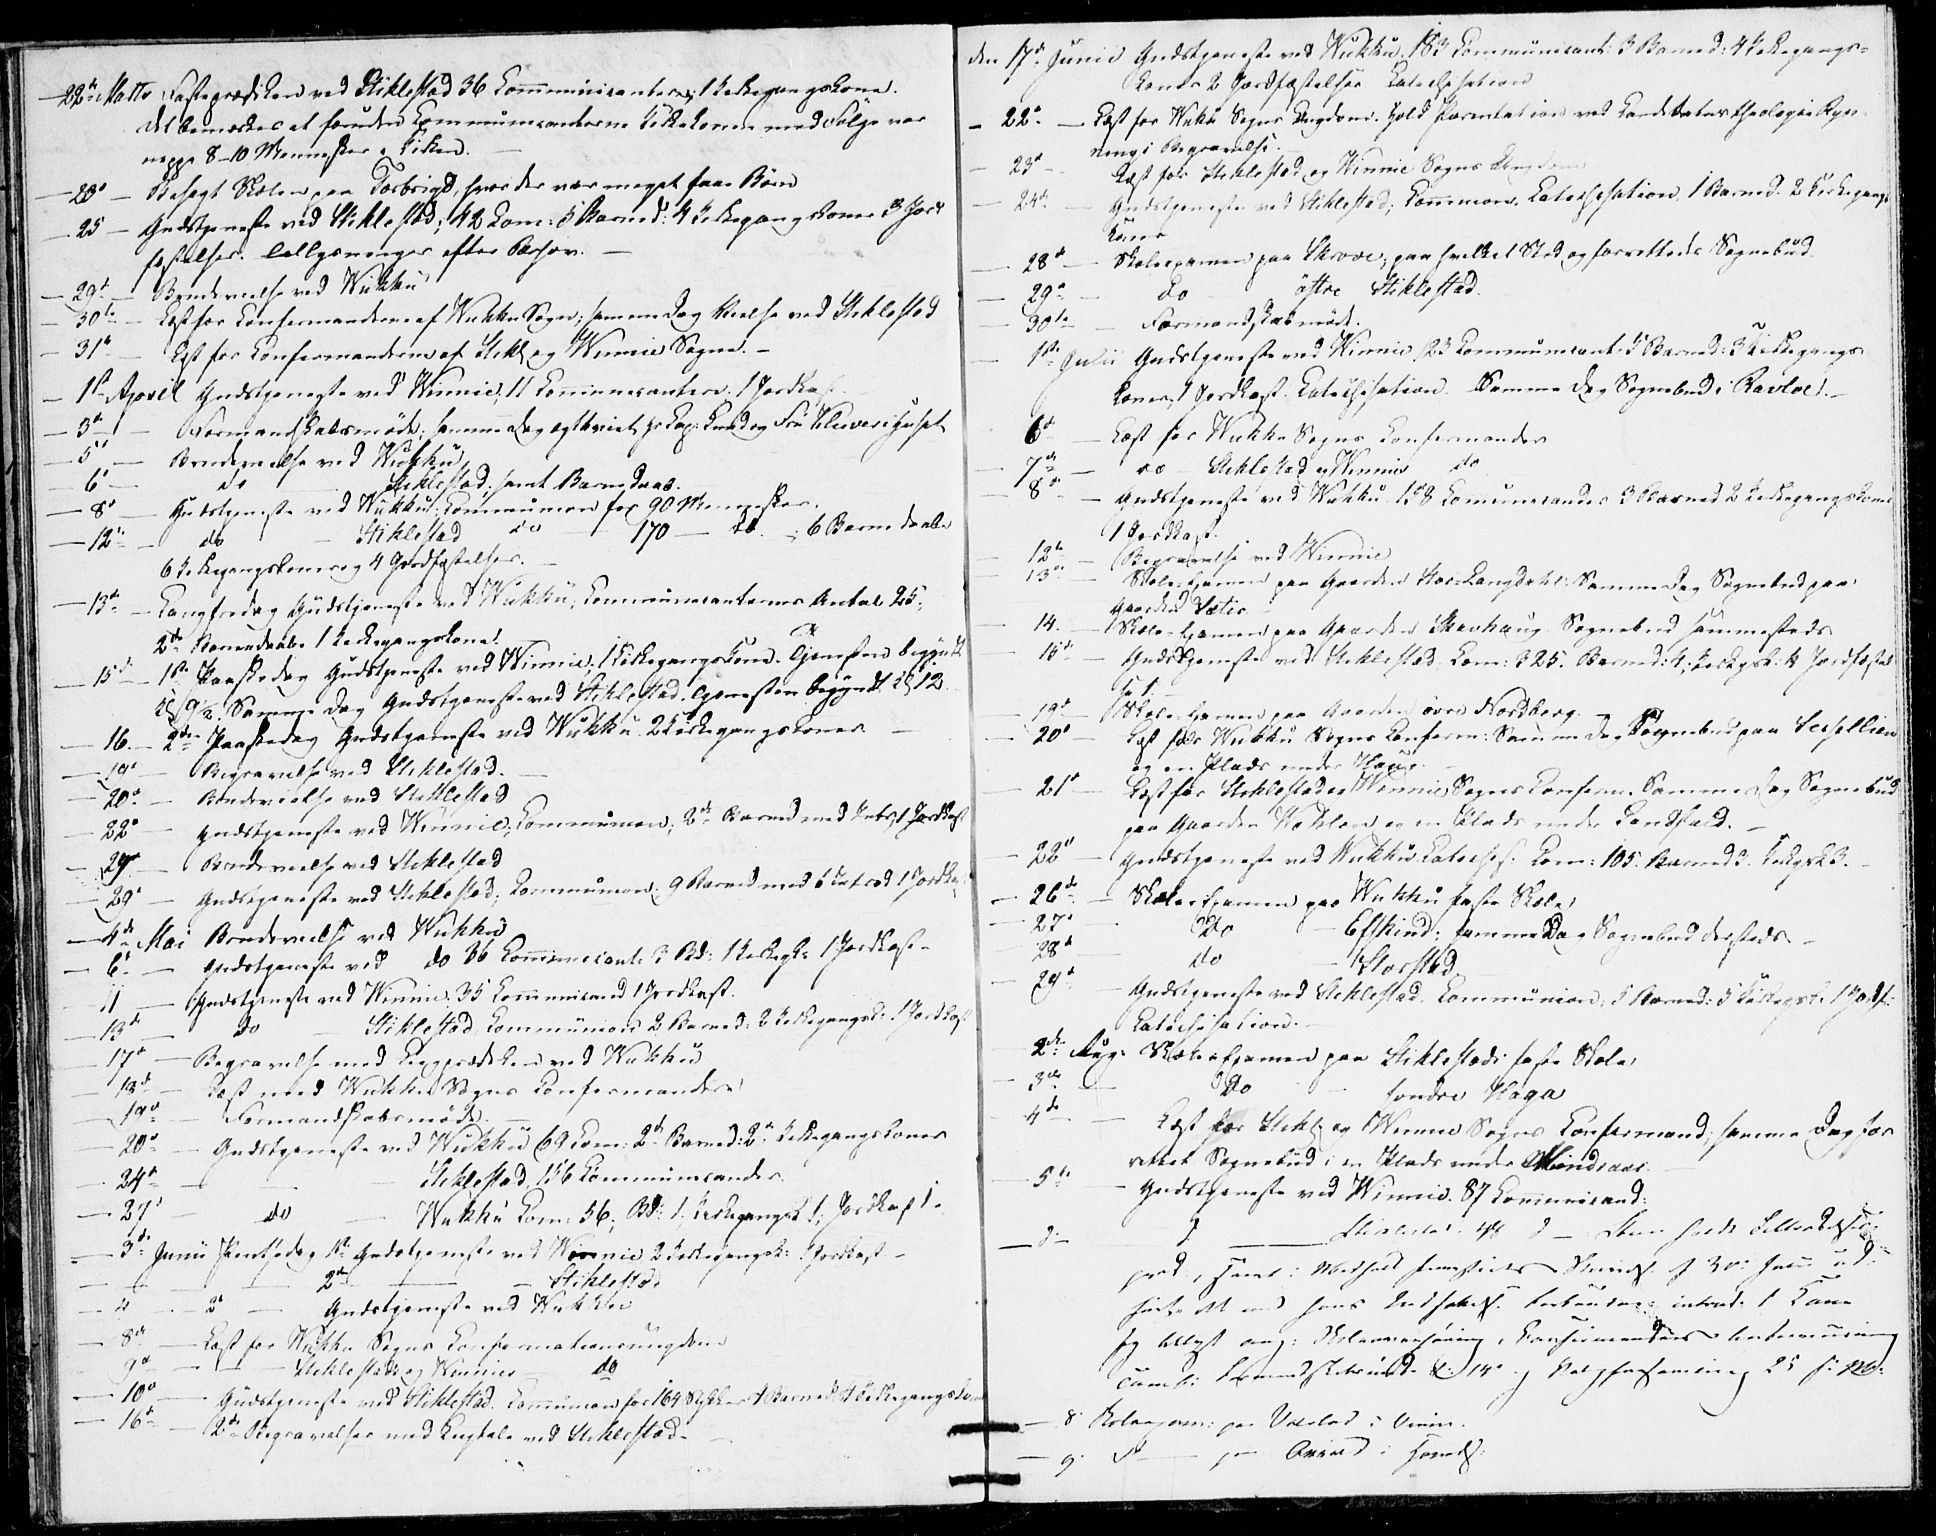 22de Marts Fasteprædiken ved Stiklestad 36 Communicantere, 1 Kirkegangskone.
Det bemærkes at foruden Communicanterne Kirkekonen med Følge var
neppe 8-10 Mennesker i Kirken. —
— 23d — Besøgt Skolen paa hvor der var meget faae Børn
— 25 — Gudstjeneste ved Stiklestad; 42 Com: 5 Barned: 4 Kirkegangskoner 3 Jord
fæstelser. efter Behov. —
— 29d — Brudevielse ved Wukku
— 30te — Læst for Confirmanderne af Wukku Sogn; samme Dag Vielse ved Stiklestad
— 31te — Læst for Confirmanderne af Stikl. og Winnie Sogne. —
— 1ste April Gudstjeneste ved Winnie, 11 Communicantere. 1 Jordkast
— 3de — Formandskabsmøde. samme Dag
— 5te — Brudevielse ved Wukku
— 6te — do — Stiklestad, samt Barnedaab.
— 8de — Gudstjeneste ved Wukku. Communion for 90 Mennesker.
— 12te — do — Stiklestad do — 170 — do. ; 6 Barnedaabe
6 Kirkegangskoner og 4 Jordfæstelser. —
— 13de — Langfredag Gudstjeneste ved Wukku, Communicanternes Antal 25;
2de Barnedaabe 1 Kirkegangskone.
— 15de — 1ste Paaskedag Gudstjeneste ved Winnie, 1 Kirkegangskone. Tjenesten begyndt
Kl 9½. Samme Dag Gudstjeneste ved Stiklestad. Tjenesten begyndt Kl 12
— 16. — 2den Paaskedag Gudstjeneste ved Wukku. 2 Kirkegangskoner —
— 19de — Begravelse ved Stiklestad. —
— 20de — Brudevielse ved Stiklestad
— 22de — Gudstjeneste ved Winnie, Communion, 2de Barned med 1 Jordkast
— 29 — Brudevielse ved Stiklestad
— 29de — Gudstjeneste ved Stiklestad; Communion. 9 Barned med 6 1 Jordkast
— 4de Mai Brudevielse ved Wukku
— 6te — Gudstjeneste ved do 36 Communicant: 3 Bd: 1 Kirkegk: 1 Jordkast —
— 11 — Gudstjeneste ved Winnie. 35 Communicand 1 Jordkast.
— 13de — do — Stiklestad Communion 2 Barned: 2 Kirkegangsk: 1 Jordkast
— 17de — Begravelse med Ligprædiken ved Wukku
— 18de — Læst med Wukku Sogns Confirmandere
— 19de — Formandskabsmøde —
— 20de — Gudstjeneste ved Wukku 69 Com: 2de Barned: 2de Kirkegangskoner
— 24de — — Stiklestad, 156 Communicander
— 27de — do — Wukku Com: 56; Bd: 1. Kirkegangsk 1; Jordkast 1.
— 3de Junii Pintsedag 1ste Gudstjeneste ved Winnie 2 Kirkegangsk: 1 Jordkast —
— — — 2de — — Stiklestad
— 4 — 2d — Gudstjeneste ved Wukku
— 8de — Læst for Wukku Sogns Confirmationsungdom
— 9de — — Stiklestads og Winnies — do
— 10de — Gudstjeneste ved Stiklestad. Communion for 164 Stykker 4 Barned: 4 Kirkegangskoner
— 16de — 2de Begravelser med Liigtale ved Stiklestad. —
den 17de Junii Gudstjeneste ved Wukku, 183 Communicant: 3 Barned: 4 Kirkegangs-
koner 2 Jordfæstelser Catechisation
— 22de — Læst for Wukku Sogns Ungdom. Hold Parentation ved Kandidatus theologiæ
nings Begravelse. —
— 23de — Læst for Stiklestad og Winnie Sogns Ungdom
— 24de — Gudstjeneste ved Stiklestad; Communion, Catechisation, 1 Barned. 2 Kirkegangs
koner
— 28de — Skoleexamen paa Skrove, paa hvilket Sted og forrettedes Sognebud.
— 29de — do — östre Stiklestad.
— 30te — Formandskabsmöde.
— 1ste Julii Gudstjeneste ved Winnie, 123 Communicant: 5 Barned: 3 Kirkegangs
koner, 1 Jordkast. Catechisation. Samme Dag Sognebud i Ravloe. —
6te — Læst for Wukku Sogns Confirmander
— 7de — do — Stiklestad og Winnie do
— 8de — Gudstjeneste ved Wukku. 158 Communicander 3 Barned 2 Kirkegangskoner
1 Jordkast.
— 12te — Begravelse ved Winnie
— 13de — Skole Examen paa Gaarden Stor Langdahl. Samme Dag Sognebud paa
Gaarden Sætre —
— 14. — Skole Examen paa Gaarden Skavhaug. Sognebud sammesteds
— 15de — Gudstjeneste ved Stiklestad. Com: 325. Barned: 4, Kirkegk: 4 Jordfæstel
se 1. —
— 19de — Skole Examen paa Gaarden övre Nordberg. —
— 20de — Læst for Wukku Sogns Confirm: Samme Dag Sognebud paa
og en Plads under Haug. —
— 21de — Læst for Stiklestad og Winnie Sogns Confirm. Samme Dag Sognebud
paa Gaarden og en Plads under Landfald. —
— 22de — Gudstjeneste ved Wukku Catechis: Com: 105. Barned 3. Kirkegk 3. —
— 26de — Skole Examen paa Wukku faste Skole
— 27de — do — Efskind; samme Dag Sognebud dersteds —
— 28de — do — Storstad
— 29de — Gudstjeneste ved Stiklestad. Communion, 5 Barned: 5 Kirkegk: 1 Jordf:
Catechisation. —
2den Aug: Skole Examen paa Stiklestads faste Skole
— 3de — do — söndre Haga
— 4de — Læst for Stikl: og Winnie Sogns Confirmand; samme Dag for
rettet Sognebud i en Plads under
— 5te — Gudstjeneste ved Winnie. 87 Communicand:
— d: — Stiklestad
— 8. Skoleexam: paa i Vinne.
— 9. d — paa